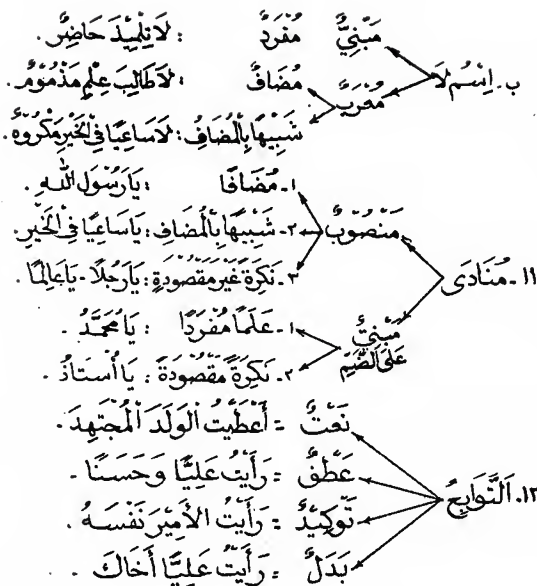 ب. اِسْمُ لَا
مَبْنِيٌّ مُفْرَدٌ : لَا تِلْمِيْذَ حَاضِرٌ.
مُعْرَبٌ
مُضَافٌ : لَا طَالِبَ عِلْمٍ مَذْمُوْمٌ.
شَبِيْهًا بِالْمُضَافِ : لَا سَاعِيًا فِى الْخَيْرِ مَكْرُوْهٌ.
١١. مُنَادَى
مَنْصُوْبٌ
١. مُضَافًا : يَا رَسُوْلَ اللهِ.
٢. شَبِيْهًا بِالْمُضَافِ : يَا سَاعِيًا فِى الْخَيْرِ.
٣. نَكِرَةً غَيْرَ مَقْصُوْدَةٍ : يَا رَجُلًا - يَا عَالِمًا.
مَبْنِيٌّ
عَلَى الضَّمِّ
١. عَلَمًا مُفْرَدًا : يَا مُحَمَّدُ.
٢. نَكِرَةً مَقْصُوْدَةً : يَا أُسْتَاذُ.
١٢. اَلتَّوَابِعُ
نَعْتٌ = أَعْطَيْتُ الْوَلَدَ الْمُجْتَهِدَ.
عَطْفٌ = رَأَيْتُ عَلِيًّا وَحَسَنًا.
تَوْكِيْدٌ = رَأَيْتُ الْأَمِيْرَ نَفْسَهُ.
بَدَلٌ = رَأَيْتُ عَلِيًّا أَخَاكَ.